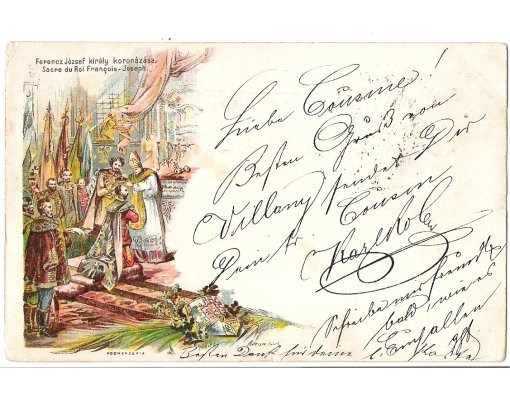 Ferencz József király koronázása.
Sacre du Roi François-Joseph.
Liebe Cousine!
Besten Gruß von
Villany sendet Dir
Dein tr. Cousin
Karl
Schreibe mir
bald, wie es
gefallen
Besten Dank für deine